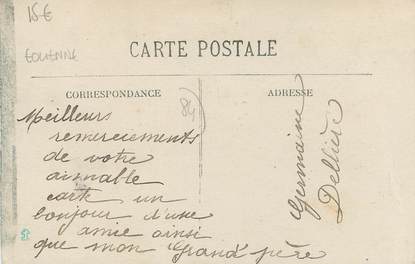 15€
EOLIENNE
CARTE POSTALE
CORRESPONDANCE
ADRESSE
84
Meilleurs
remerciements
de votre
aimable
carte un
bonjour d'une
amie ainsi
que mon Grand'père
Germaine
Dellière